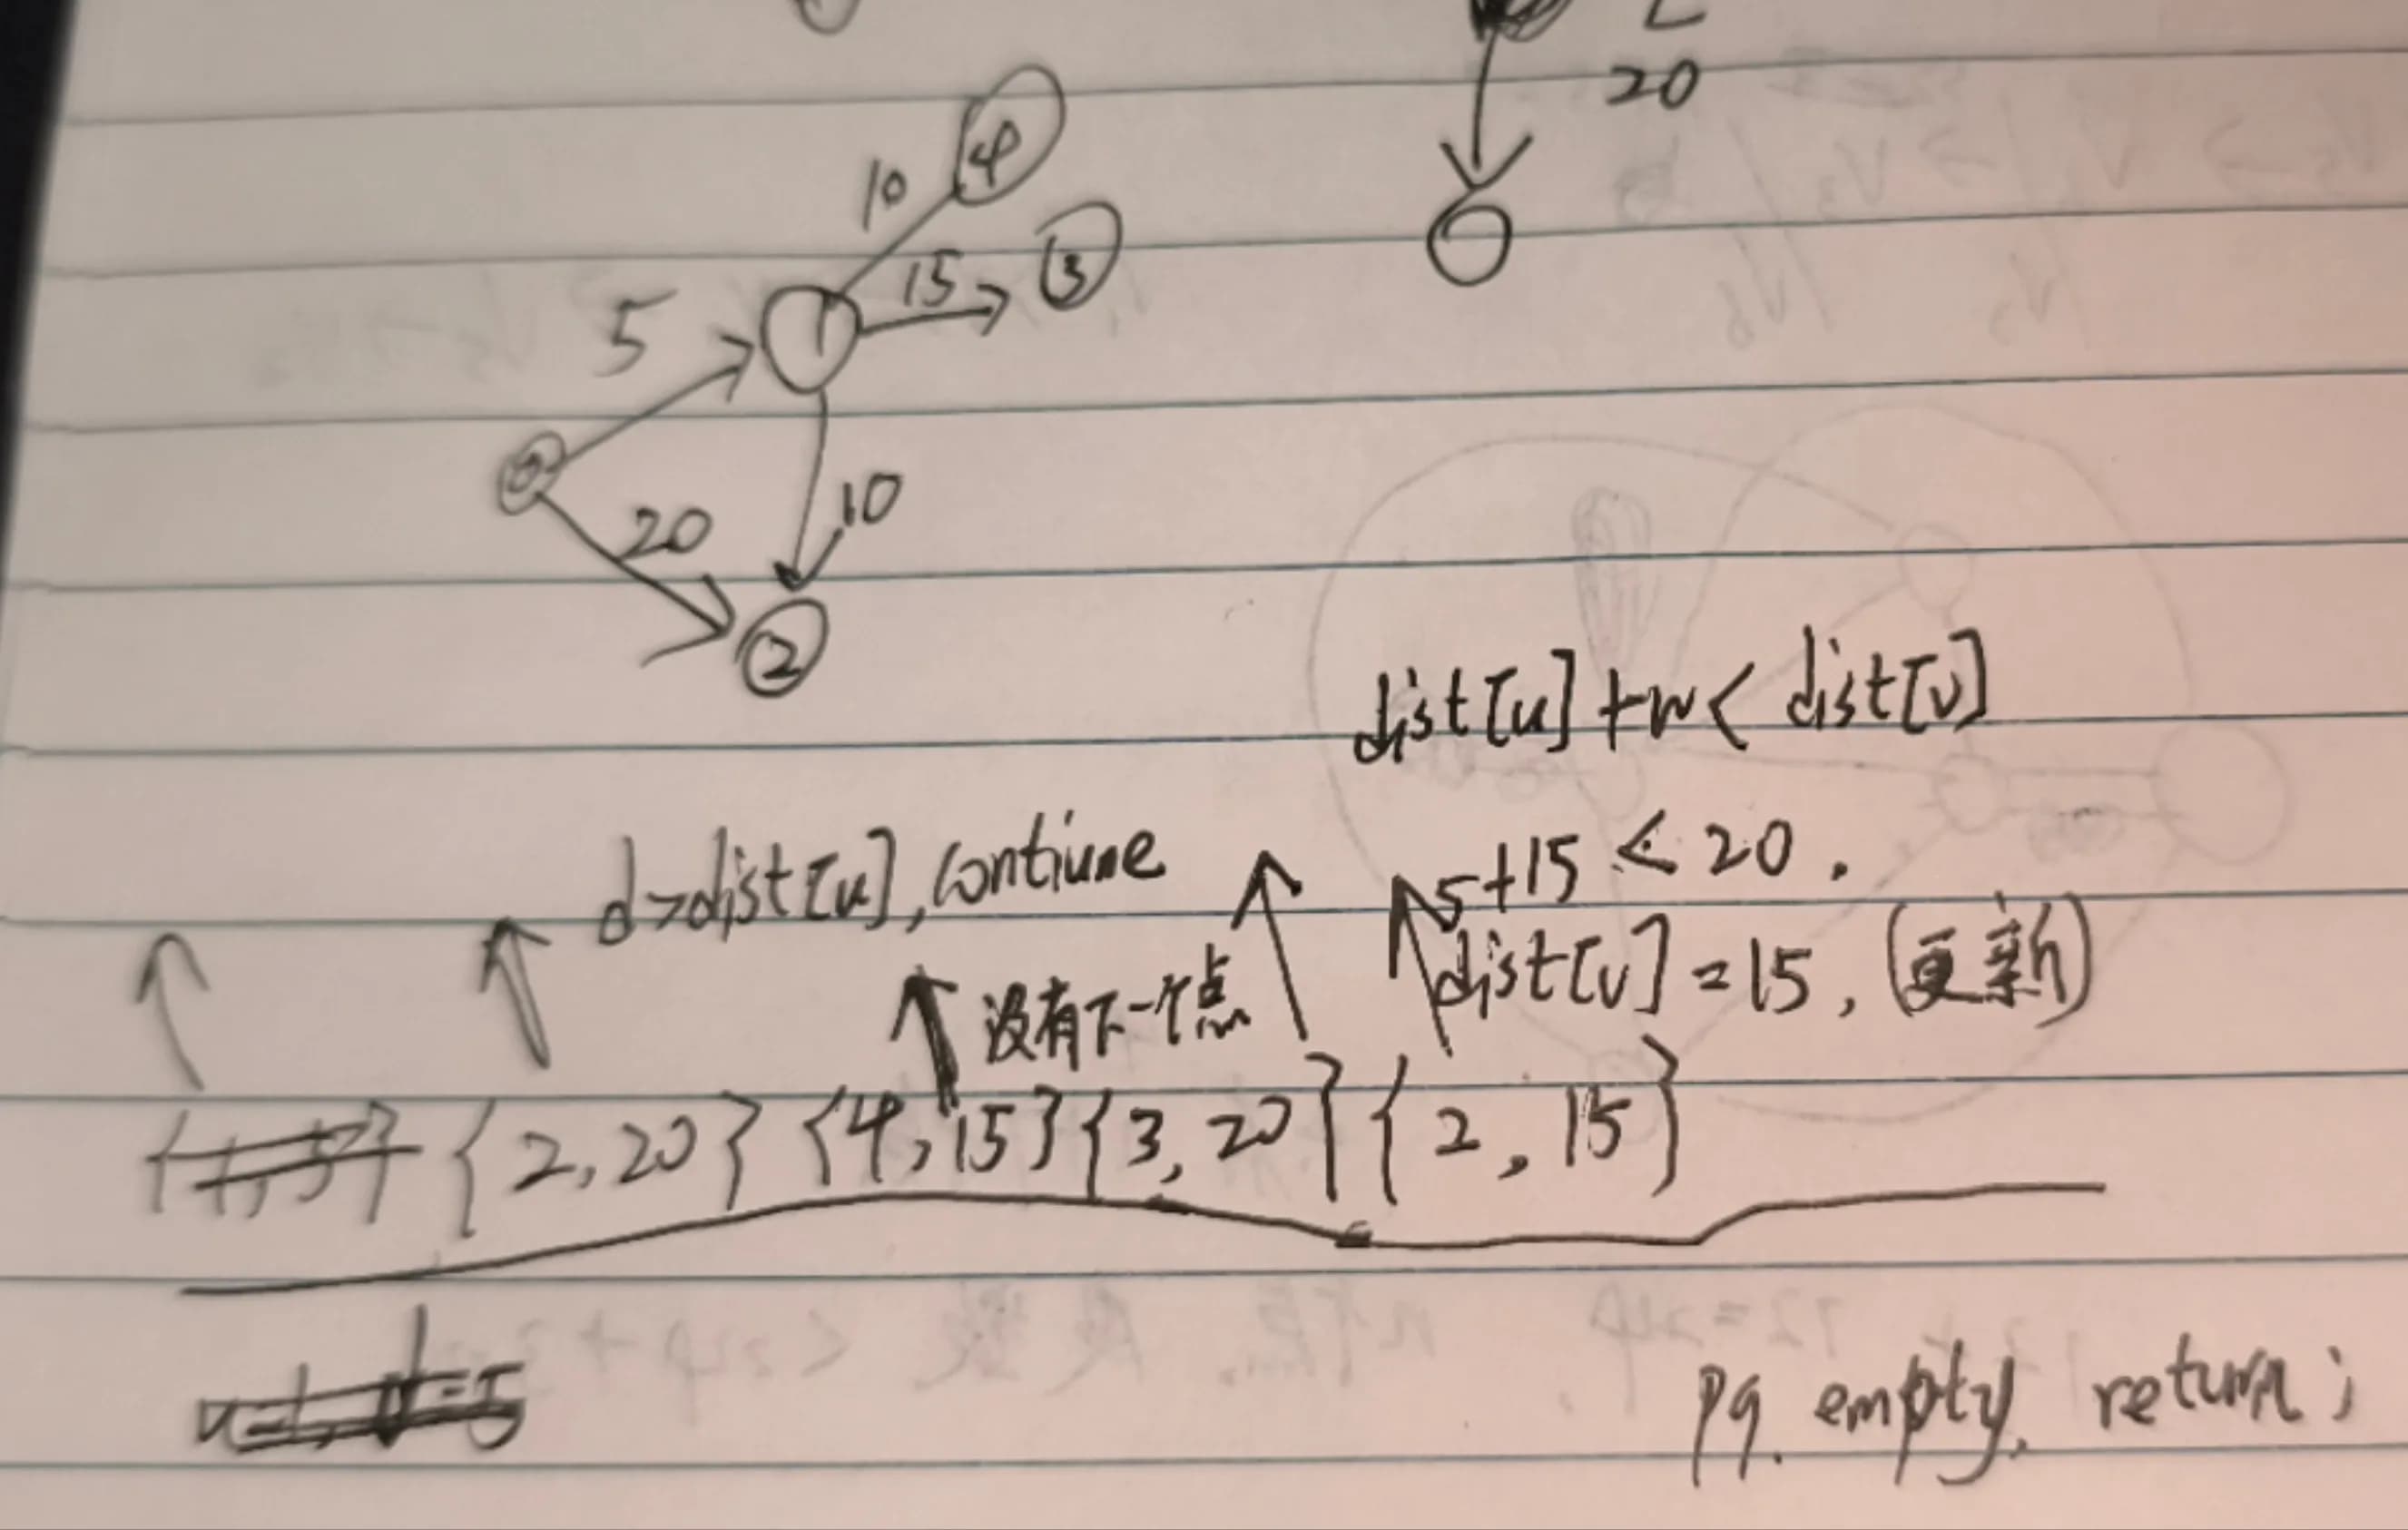 20
4
10
3
15
1
5
10
20
2
dist[u]+w< dist[v]
d>dist[u], contiune
5+15 < 20 .
dist[v]=15, (更新)
没有下一个点
{1,5} {2,20} {4,15} {3,20} {2,15}
pq. empty, return;